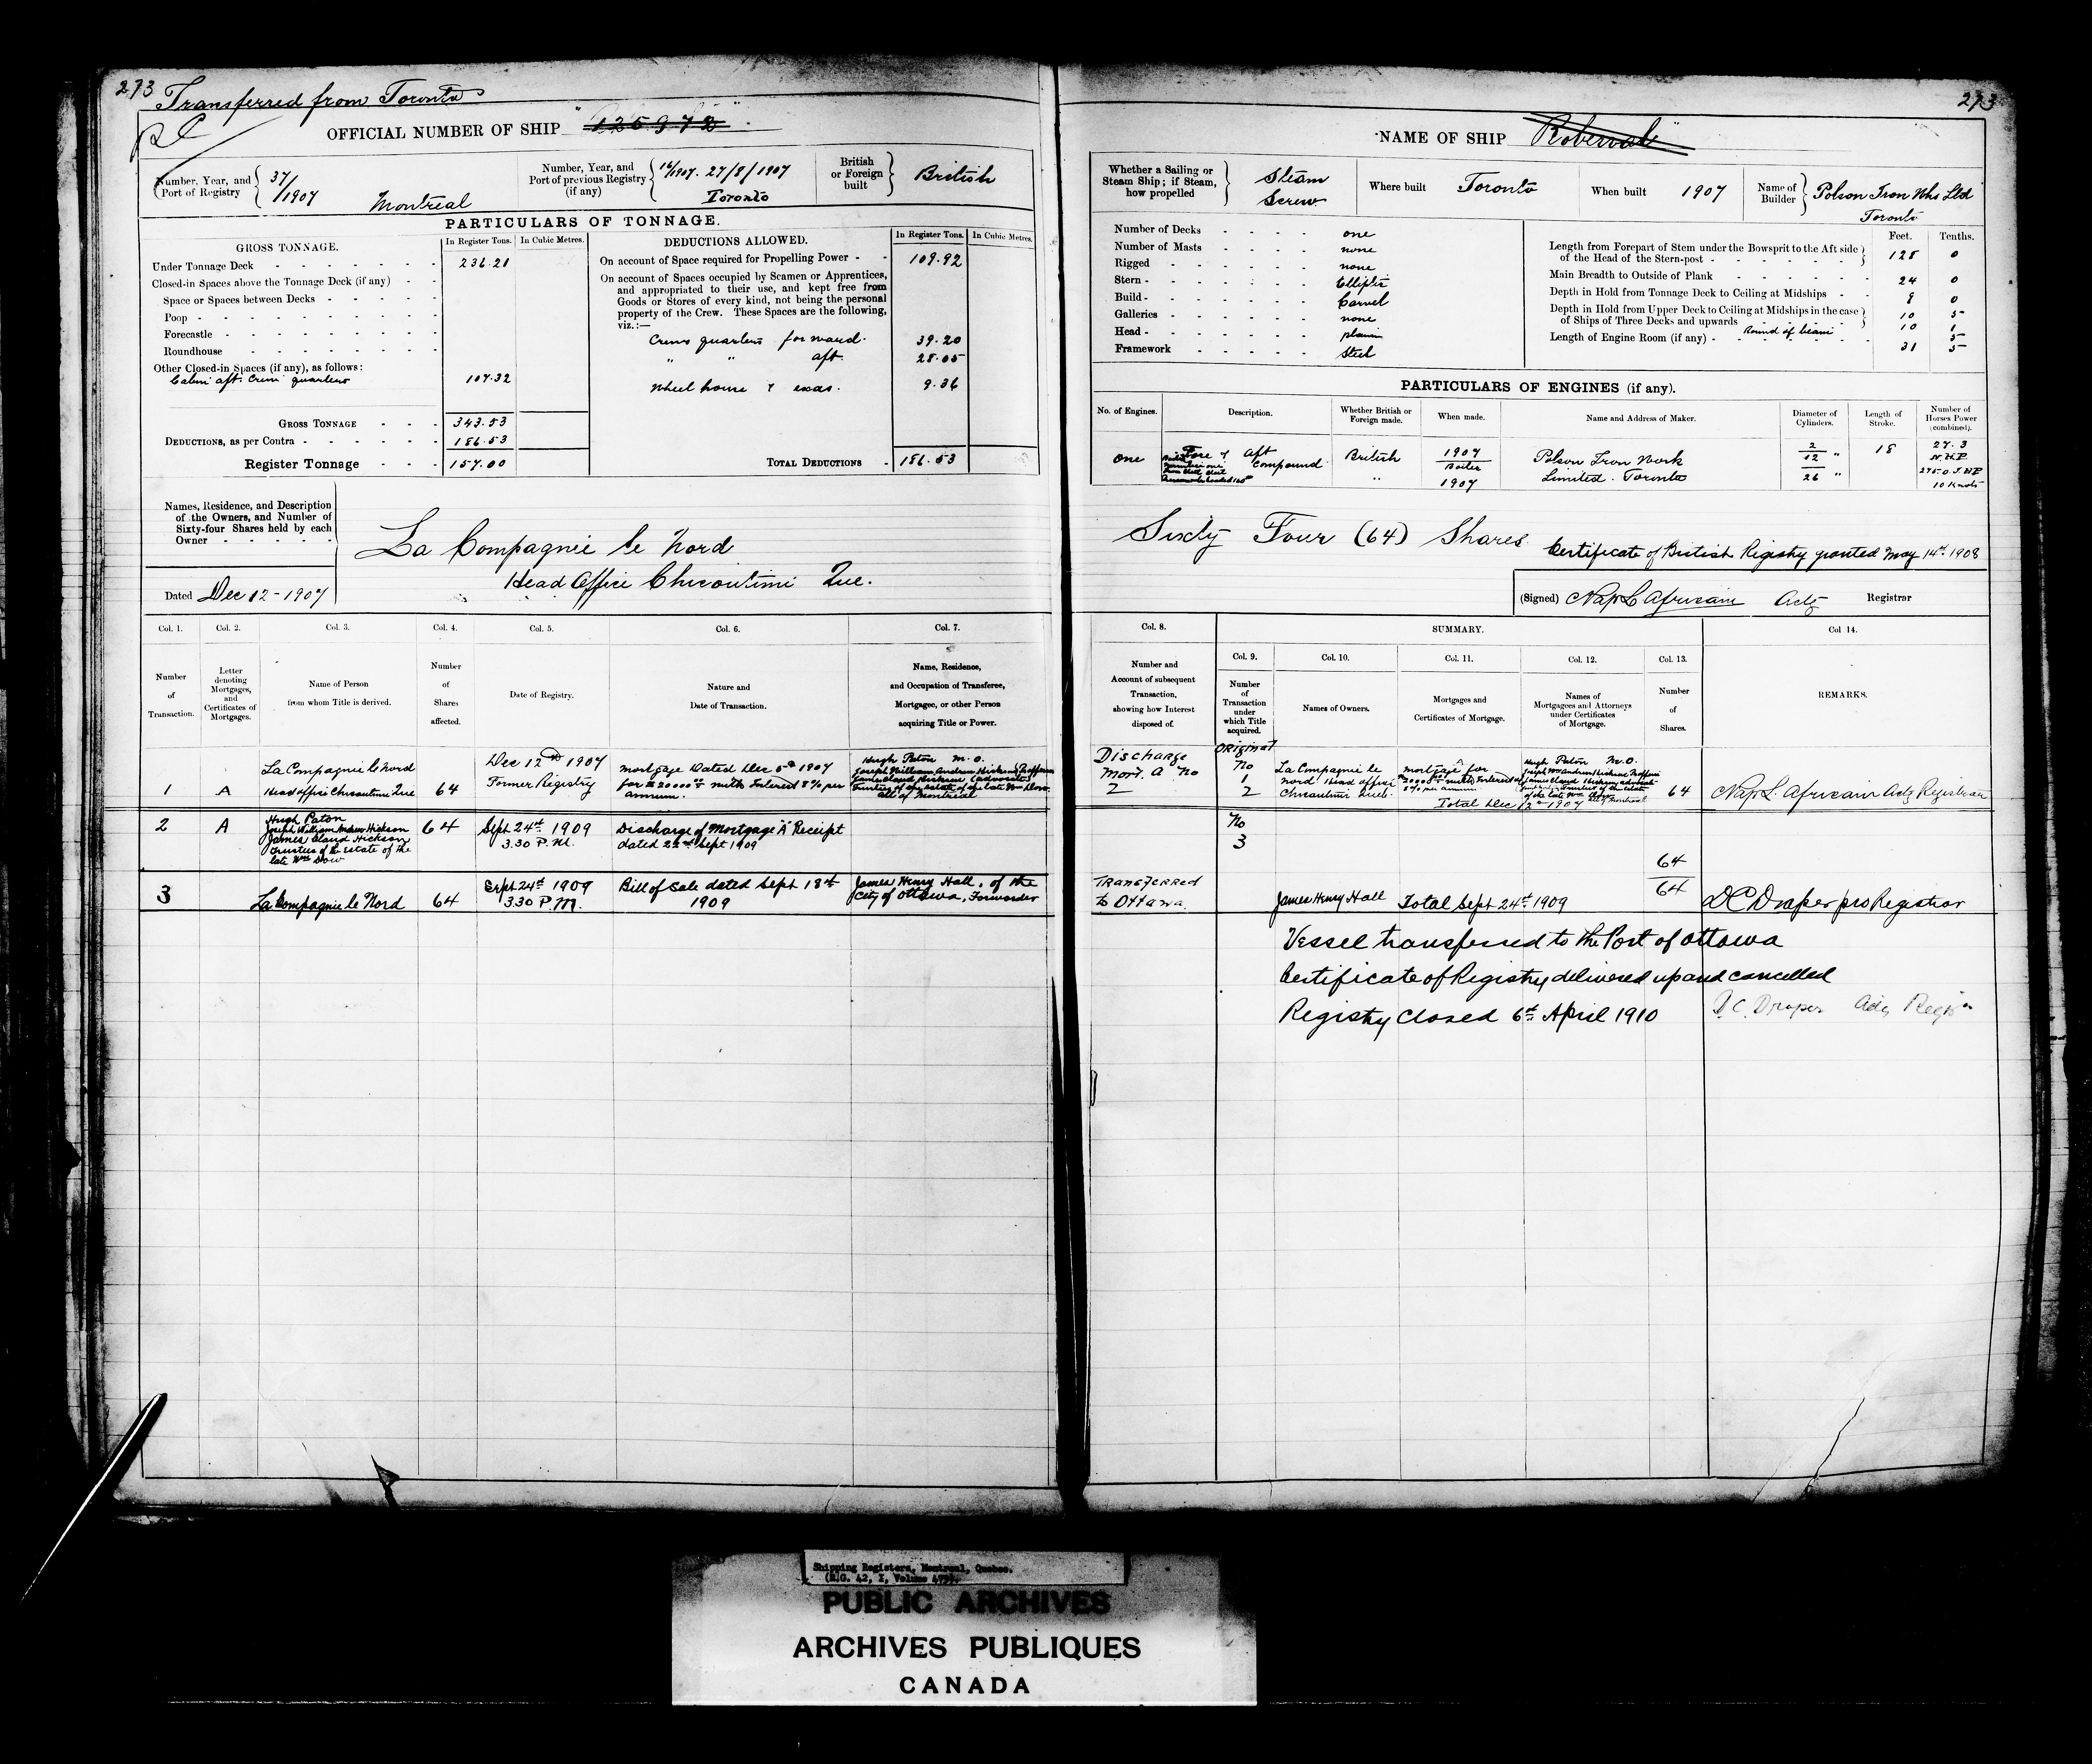 273
Transferred from Toronto
OFFICIAL NUMBER OF SHIP "125972"
Number, Year, and Port of Registry 37/1907 Montreal
Number, Year, and Port of previous Registry (if any) 16/1907. 27/8/1907 Toronto
British or Foreign built British
PARTICULARS OF TONNAGE.
GROSS TONNAGE. In Register Tons. In Cubic Metres.
Under Tonnage Deck 236.21
Closed-in Spaces above the Tonnage Deck (if any)
Space or Spaces between Decks
Poop
Forecastle
Roundhouse
Other Closed-in Spaces (if any), as follows:
Cabin aft. Crew quarters 107.32
GROSS TONNAGE 343.53
DEDUCTIONS, as per Contra 186.53
Register Tonnage 157.00
DEDUCTIONS ALLOWED. In Register Tons. In Cubic Metres.
On account of Space required for Propelling Power 109.92
On account of Spaces occupied by Seamen or Apprentices,
and appropriated to their use, and kept free from
Goods or Stores of every kind, not being the personal
property of the Crew. These Spaces are the following,
viz.:—
Crews quarters forward. 39.20
" " aft. 28.05
Wheel house & 9.36
TOTAL DEDUCTIONS 186.53
Names, Residence, and Description
of the Owners, and Number of
Sixty-four Shares held by each
Owner
La Compagnie le Nord
Head Office Chicoutimi Que.
Dated Dec 12 - 1907
Col. 1. Col. 2. Col. 3. Col. 4. Col. 5. Col. 6. Col. 7.
Number of Transaction.
Letter denoting Mortgages, and Certificates of Mortgages.
Name of Person from whom Title is derived.
Number of Shares affected.
Date of Registry.
Nature and Date of Transaction.
Name, Residence, and Occupation of Transferee, Mortgagee, or other Person acquiring Title or Power.
1 A
La Compagnie le Nord
Head office Chicoutimi Que
64
Dec 12th 1907
Former Registry
Mortgage Dated Dec 5th 1907
for $20000 00 with Interest 8% per
annum.
Hugh Paton M.O.
Joseph William Andrew Hickson
James Claud Hickson (advocate)
Trustees of the estate of the late Wm Dow.
all of Montreal
2 A
Hugh Paton
Joseph William Andrew Hickson
James Claud Hickson
Trustees of the estate of the
late Wm Dow
64
Sept 24th 1909
3.30 P.M.
Discharge of Mortgage "A" Receipt
dated 22nd Sept 1909
3
La Compagnie le Nord
64
Sept 24th 1909
3.30 P.M.
Bill of Sale dated Sept 18th
1909
James Henry Hall, of the
City of Ottawa, Forwarder
273
NAME OF SHIP "Roberval"
Whether a Sailing or Steam Ship; if Steam, how propelled Steam Screw
Where built Toronto
When built 1907
Name of Builder Polson Iron Wks Ltd Toronto
Number of Decks one
Number of Masts none
Rigged none
Stern Elliptic
Build Carvel
Galleries none
Head plain
Framework Steel
Feet. Tenths.
Length from Forepart of Stem under the Bowsprit to the Aft side
of the Head of the Stern-post 128 0
Main Breadth to Outside of Plank 24 0
Depth in Hold from Tonnage Deck to Ceiling at Midships 9 0
Depth in Hold from Upper Deck to Ceiling at Midships in the case
of Ships of Three Decks and upwards 10 5
Round of beam
Length of Engine Room (if any) 31 5
PARTICULARS OF ENGINES (if any).
No. of Engines. Description. Whether British or Foreign made. When made. Name and Address of Maker. Diameter of Cylinders. Length of Stroke. Number of Horses Power (combined).
one
Fore & Aft
Compound
British
1907
Boiler
"
1907
Polson Iron Work
Limited. Toronto
2
12 "
26 "
18
27.3
N.H.P
275.0 I HP
10 Knots
Sixty Four (64) Shares.
Certificate of British Registry granted May 14th 1908
(Signed) Nap L Africain Actg Registrar
Col. 8. SUMMARY. Col 14.
Col. 9. Col. 10. Col. 11. Col. 12. Col. 13.
Number and Account of subsequent Transaction, showing how Interest disposed of.
Number of Transaction under which Title acquired.
Names of Owners.
Mortgages and Certificates of Mortgage.
Names of Mortgagees and Attorneys under Certificates of Mortgage.
Number of Shares.
REMARKS.
Discharge
Mort. A No
2
Original
No
1
2
La Compagnie le
Nord. Head office
Chicoutimi Que.
Mortgage A for
Total Dec 12th 1907
Hugh Paton M.O.
64
Nap. L. Africain Actg Registrar
No
3
64
64
Transferred
to Ottawa.
James Henry Hall
Total Sept 24th 1909
D C Draper pro Registrar
Vessel transferred to the Port of Ottawa
Certificate of Registry delivered up and cancelled
Registry Closed 6th April 1910
D.C. Draper Actg Regr
Shipping Registers, Montreal, Quebec.
PUBLIC ARCHIVES
ARCHIVES PUBLIQUES
CANADA